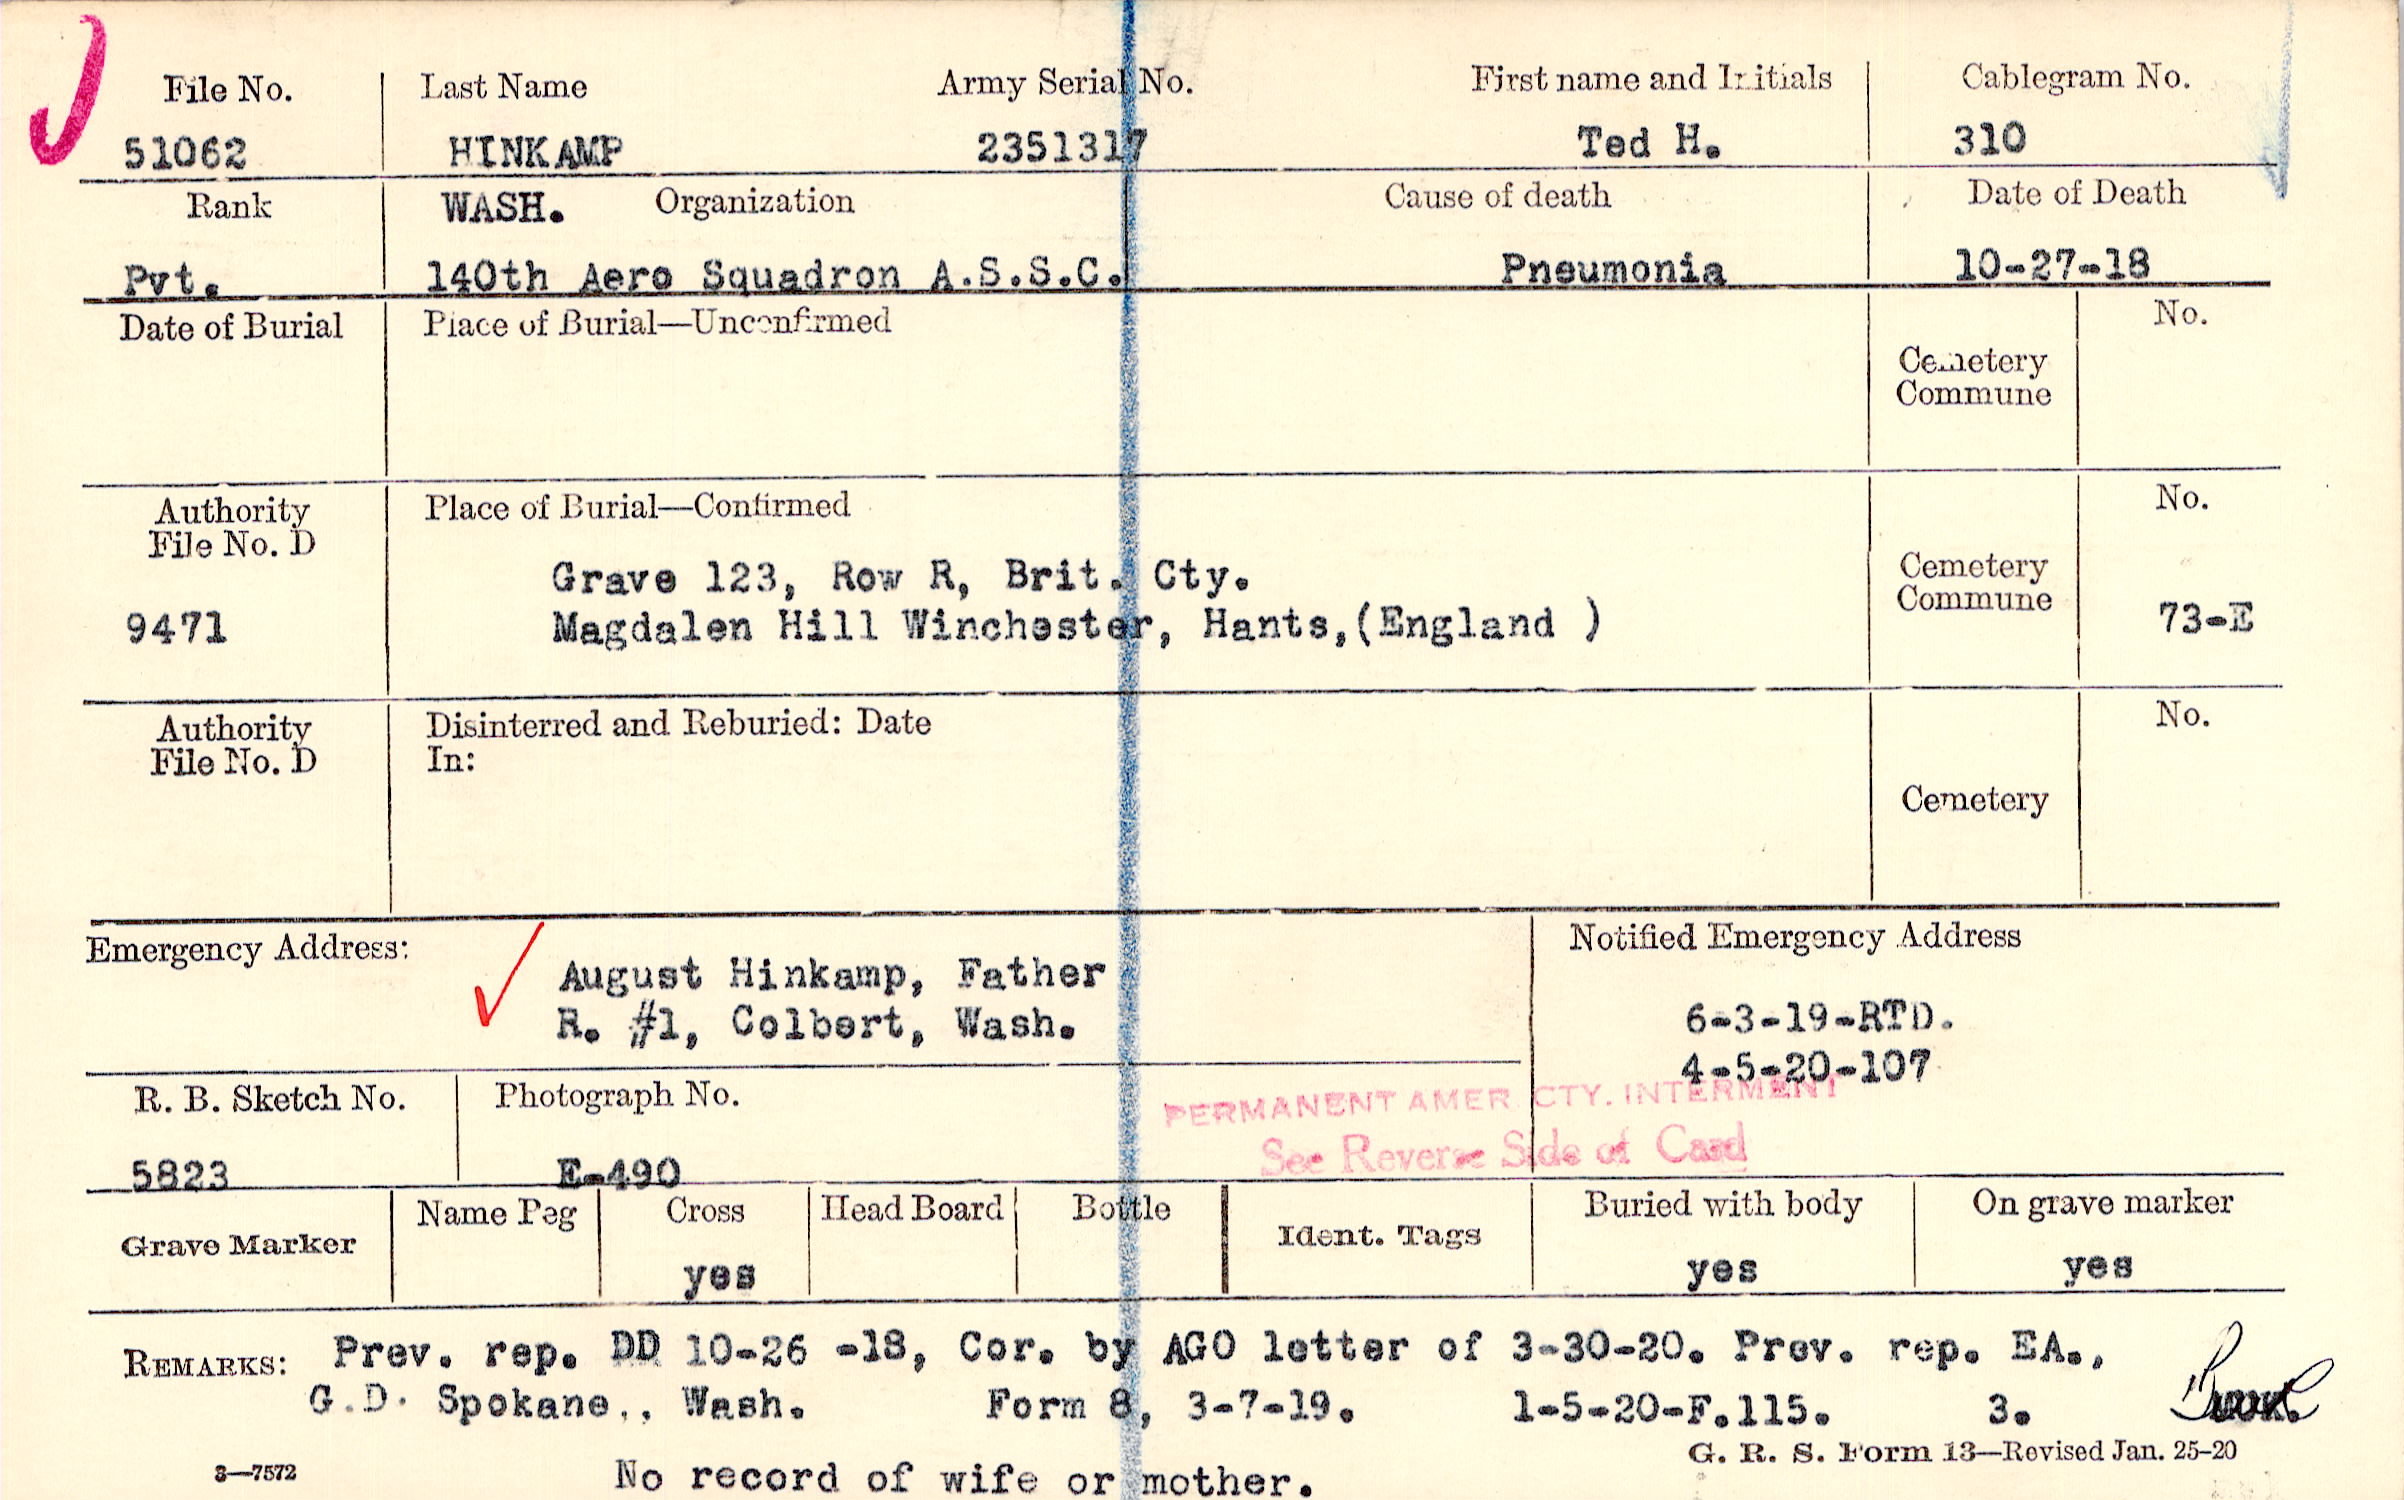 File No. Last Name Army Serial No. First name and Initials Cablegram No.
51062 HINKAMP 2351317 Ted H. 310
Rank WASH. Organization Cause of death Date of Death
Pvt. 140th Aero Squadron A.S.S.C. Pneumonia 10-27-18
Date of Burial Place of Burial—Unconfirmed No.
Cemetery
Commune
Authority Place of Burial—Confirmed No.
File No. D
Grave 123, Row R, Brit. Cty. Cemetery
Commune
9471 Magdalen Hill Winchester, Hants,(England ) 73-E
Authority Disinterred and Reburied: Date No.
File No. D In:
Cemetery
Emergency Address: Notified Emergency Address
August Hinkamp, Father
R. #1, Colbert, Wash. 6-3-19-RTD.
4-5-20-107
R. B. Sketch No. Photograph No. PERMANENT AMER CTY. INTERMENT
See Reverse Side of Card
5823 E-490
Grave Marker Name Peg Cross Head Board Bottle Ident. Tags Buried with body On grave marker
yes yes yes
REMARKS: Prev. rep. DD 10-26 -18, Cor. by AGO letter of 3-30-20. Prev. rep. EA.,
G.D. Spokane., Wash. Form 8, 3-7-19. 1-5-20-F.115. 3.
G. R. S. Form 13—Revised Jan. 25-20
3—7572 No record of wife or mother.